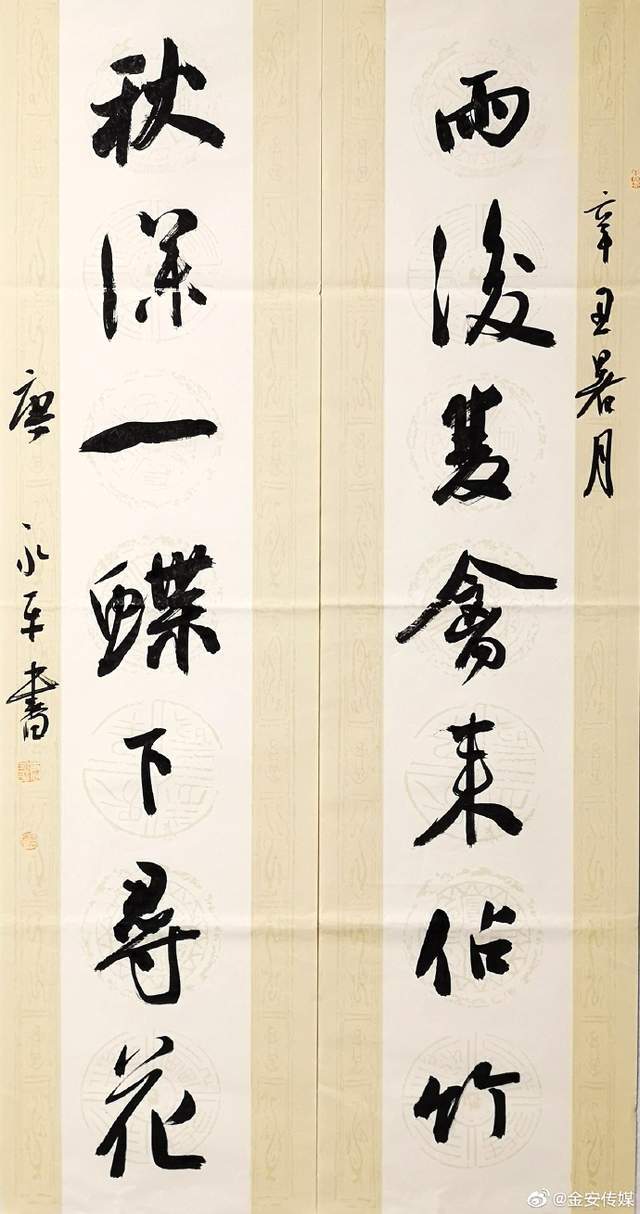 辛丑暑月
雨後雙禽来佔竹
秋深一蝶下尋花
唐永平書
@金安传媒